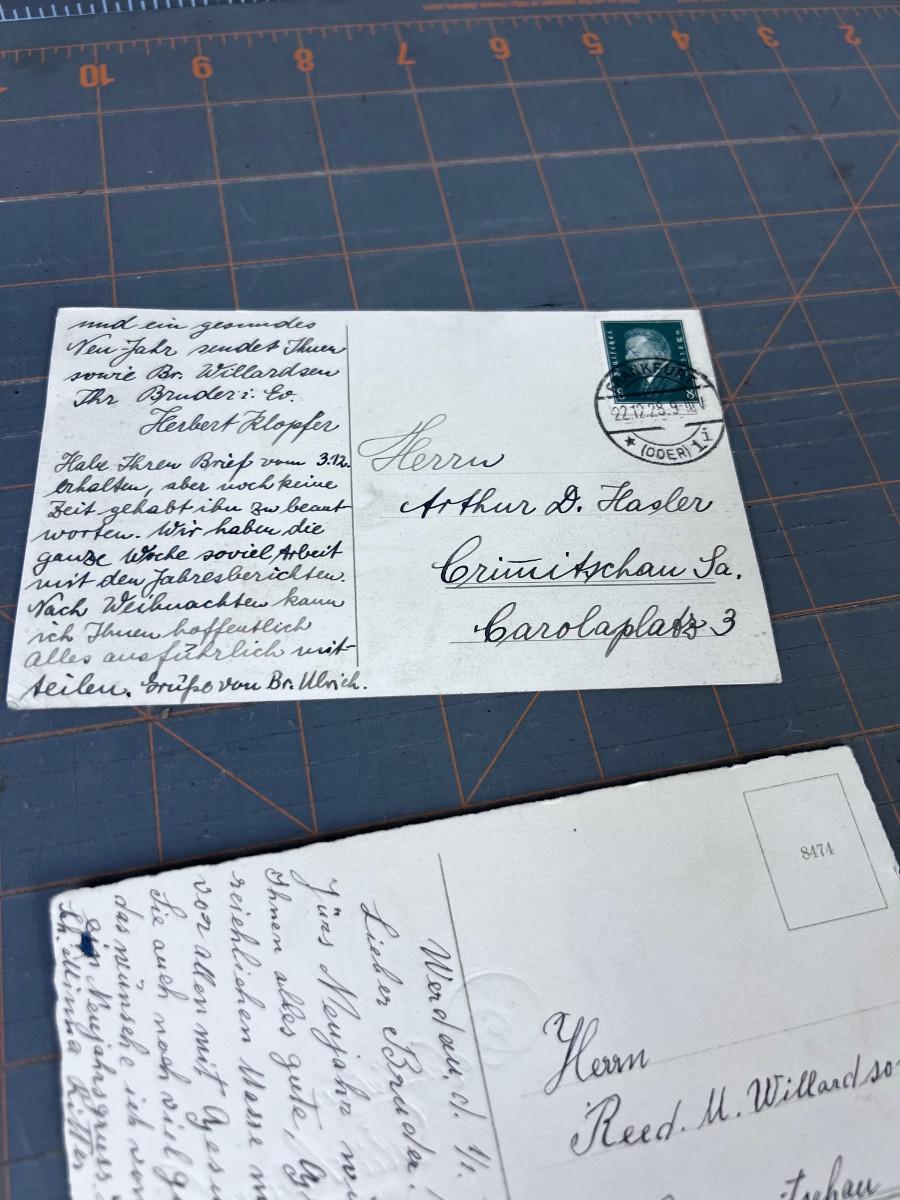 10 9 8 7 6 5 4 3 2
und ein gesundes
Neu-Jahr sendet Ihnen
sowie Br. Willardsen
Ihr Bruder i. Ev.
Herbert Klopfer
Habe Ihren Brief vom 3.12.
erhalten, aber noch keine
Zeit gehabt ihn zu beant
worten. Wir haben die
ganze Woche soviel Arbeit
mit den Jahresberichten.
Nach Weihnachten kann
ich Ihnen hoffentlich
alles ausführlich mit-
teilen. Grüße von Br. Ulrich.
FRANKFURT
22.12.28. 9-
(ODER) 1 i
Herrn
Arthur D. Hasler
Crimmitschau Sa.
Carolaplatz 3
8474
Werdau, d. 1/1.
Lieber Bruder.
Fürs Neujahr
Ihnen alles gute,
reichlichen Masse
vor allen mit
Sie auch noch viel
das wünsche ich von
Ein Neujahrsgruss.
Sch. Minna
Herrn
Reed. M. Willardso
tschau